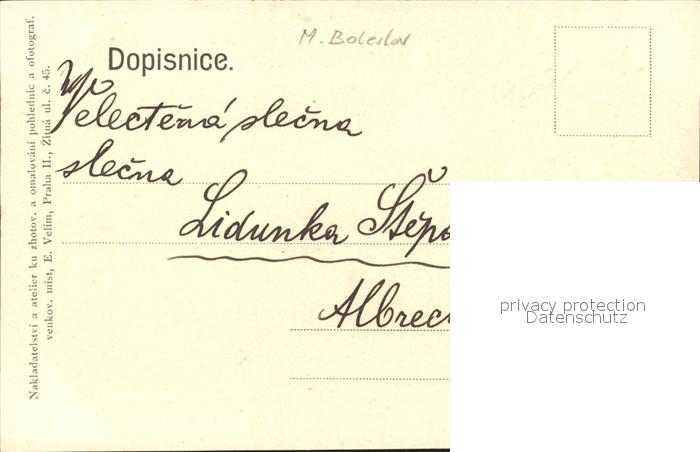 M. Boleslav
Dopisnice.
Velectěná slečna
slečna
Lidunka Štěpá
Albrec
privacy protection
Datenschutz
Nakladatelství a atelier ku zhotov. a omalování pohlednic a ofotograf.
venkov. míst, E. Velím, Praha II., Žitná ul. č. 45.